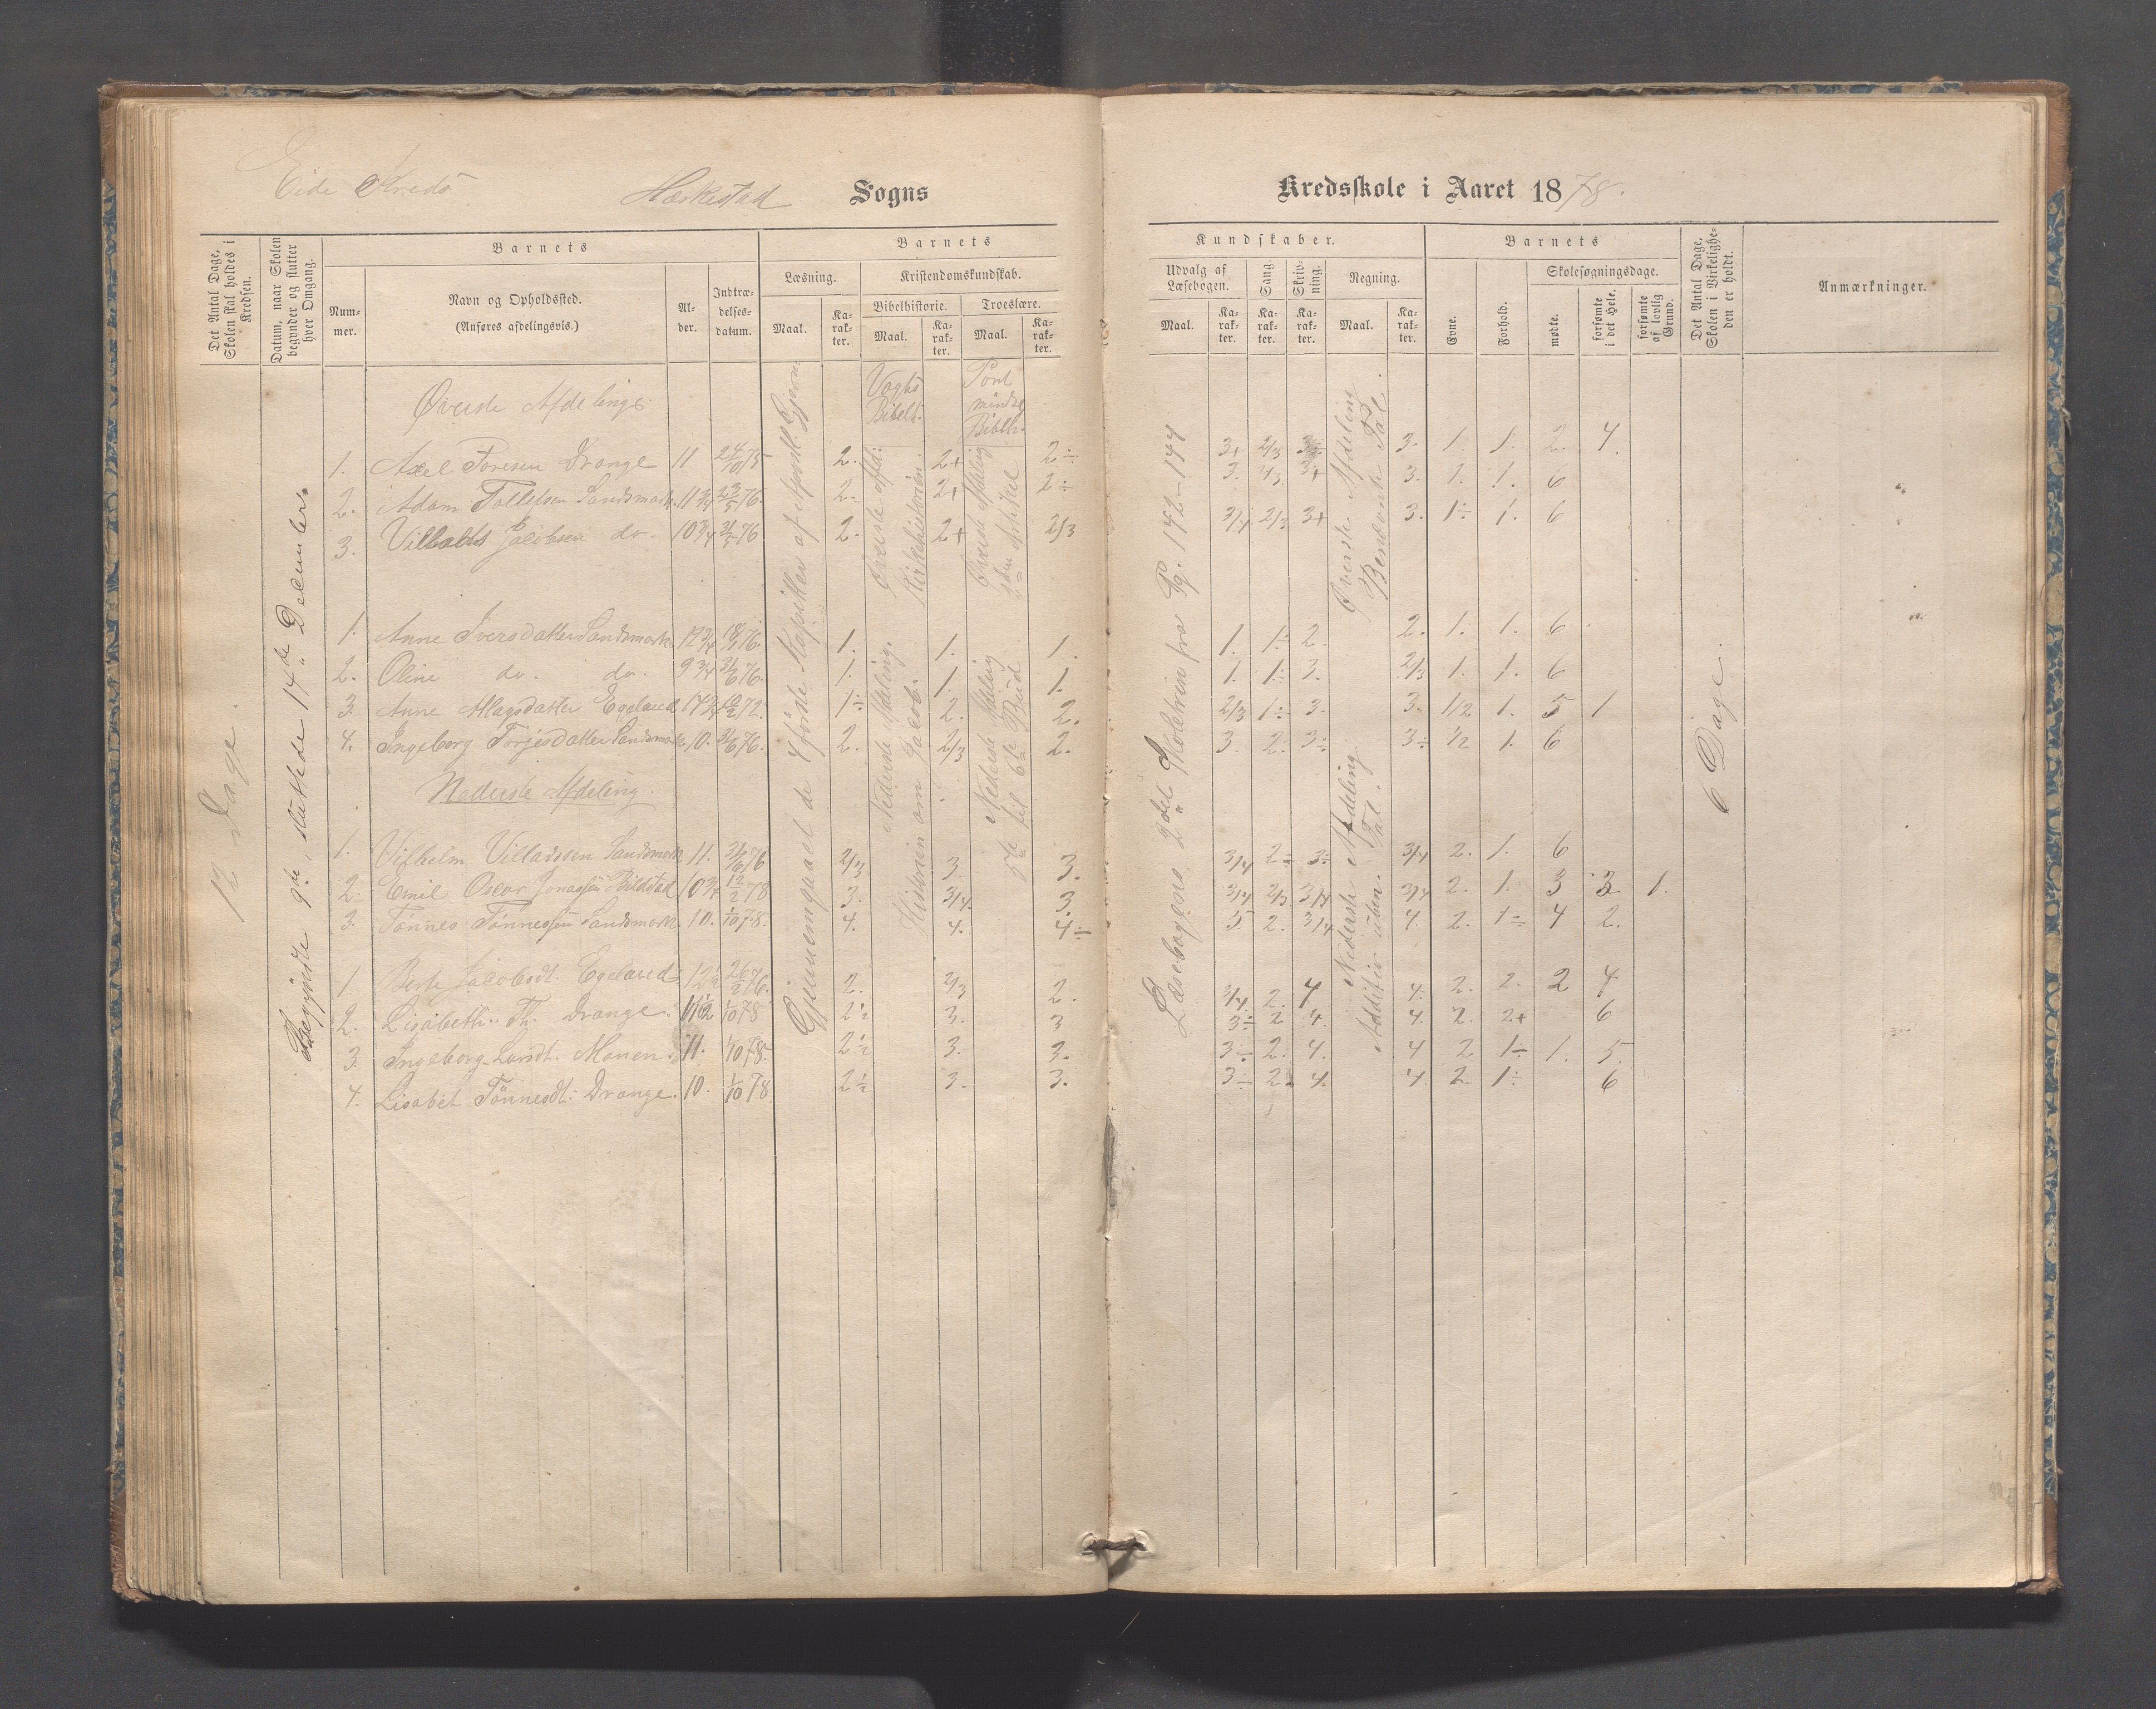 Eide Kreds
Heskestad Sogns
Kredsskole i Aaret 1878.
Det Antal Dage, Skolen skal holdes i Kredsen.
Datum, naar Skolen begynder og slutter hver Omgang.
Barnets
Nummer.
Navn og Opholdssted.
(Anføres afdelingsvis.)
Alder.
Indtrædelsesdatum.
Barnets
Læsning.
Maal.
Karakter.
Kristendomskundskab.
Bibelhistorie.
Maal.
Karakter.
Troeslære.
Maal.
Karakter.
Kundskaber.
Udvalg af Læsebogen.
Maal.
Karakter.
Sang.
Karakter.
Skrivning.
Karakter.
Regning.
Maal.
Karakter.
Barnets
Evne.
Forhold.
Skolesøgningsdage.
mødte.
forsømte i det Hele.
forsømte af lovlig Grund.
Det Antal Dage, Skolen i Virkeligheden er holdt.
Anmærkninger.
12 Dage.
Begyndte 9de, sluttede 14de December.
Gjennemgaaet de Kapitler af Apostl. Gjern.
Vogts Bibelh.
Øverste Afd: Kirkehistorien.
Nederste Afdeling. Historien om Jacob.
Pont mindre
Øverste Afdeling 2den Artikel
Nederste Afdeling 5te til 6te Bud
Læsebogens 2det Skoletrin fra Pg. 142-144
Øverste Afdeling Benævnte Tal.
Nederste Afdeling Addition uben. Tal.
6 Dage.
Øverste Afdeling:
1. Axel Toresen Drange 11 24/10 75 2. 2+ 2÷ 3+ 2/3 3÷ 3. 1. 1. 2. 4.
2. Adam Tollefsen Sandsmark. 11 3/4 23/5 76. 2. 2+ 2÷ 3. 2/3 3+ 3. 1. 1. 6
3. Villads Jacobsen do. 10 3/4 31/5 76 2. 2+ 2/3 3/4 2/3 3+ 3. 1÷ 1. 6
1. Anne Iversdatter Sandsmark 12 3/4 18/1 76. 1. 1. 1. 1. 1÷ 2. 2. 1. 1. 6
2. Oline do. do. 9 3/4 31/6 76. 1. 1. 1. 1. 1÷ 3. 2/3 1. 1. 6
3. Anne Aslagsdatter Egeland 14 3/4 12/2 72. 1÷ 2. 2. 2/3 1÷ 3. 3. 1/2 1. 5 1
4. Ingeborg Torjesdatter Sandsmark. 10. 31/6 76. 2. 2/3 2. 3. 2. 3÷ 3÷ 1/2 1. 6
Nederste Afdeling.
1. Vilhelm Villadssen Sandsmark 11. 31/6 76 2/3 3. 3. 3/4 2÷ 3÷ 3/4 2. 1. 6
2. Emil Oscar Jonassen Bilstad 10 3/4 12/2 78 3. 3/4. 3. 3/4 2/3 3/4 3/4 2. 1. 3 3 1.
3. Tønnes Tønnessen Sandsmark. 10. 1/10 78. 4. 4. 4÷ 5 2. 3/4 4. 2. 1÷ 4 2.
1. Berte Jacobsdt. Egeland 12 1/2 26/2 76. 2. 2/3 2. 3/4 2. 4 4. 2. 2. 2 4
2. Lisabeth Th. Drange. 11 1/2 1/10 78 2 1/2 3. 3 3÷ 2 4. 4. 2. 2+ 6
3. Ingeborg Larsdt. Monen. 11. 1/10 78. 2 1/2 3. 3. 3÷ 2. 4. 4 2 1÷ 1. 5.
4. Lisabet Tønnesdt. Drange. 10. 1/10 78 2 1/2 3. 3. 3÷ 2. 4. 4. 2. 1÷ 6